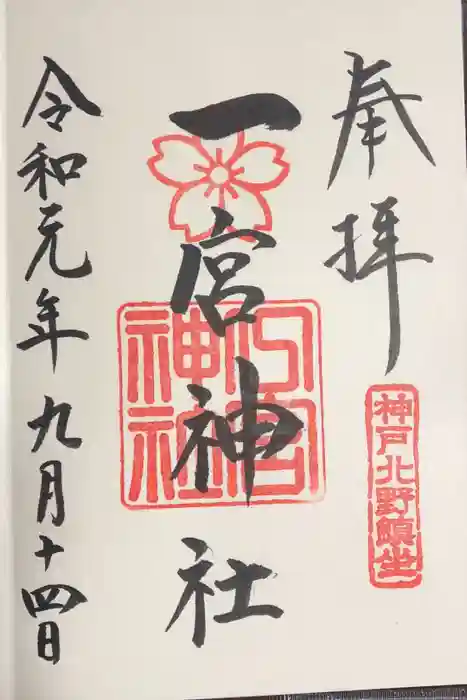 奉拝
神戸北野鎮坐
一宮神社
一宮神社
令和元年九月十四日